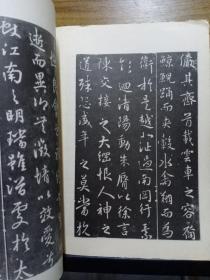 儼其齊首載雲車之容裔
鯨鯢踊而夾轂水禽翔而為
衛於是越北沚過南岡紆素
領迴清陽動朱脣以徐言
陳交接之大綱恨人神之
道殊怨盛年之莫當抗
逝而異鄉無微情以效愛
江南之明璫雖潛處於太